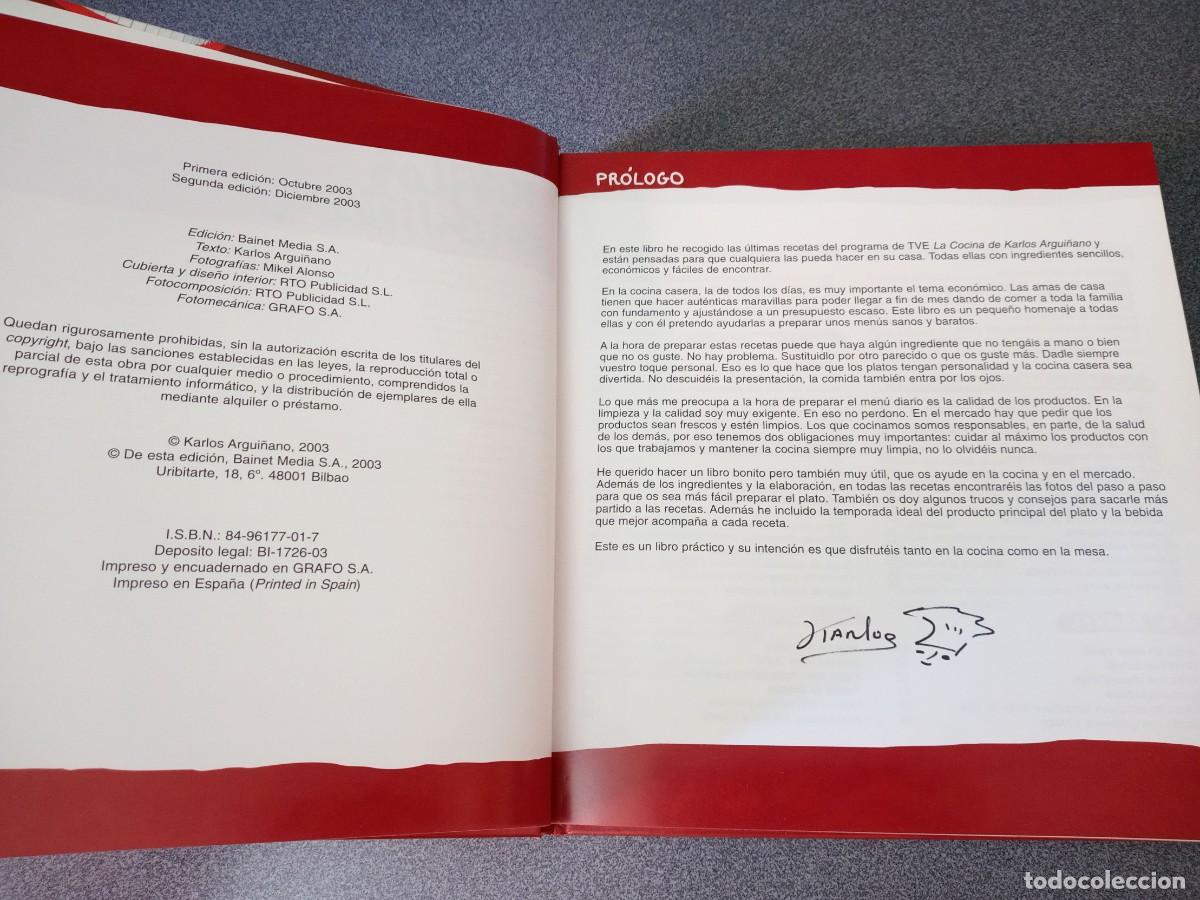 Primera edición: Octubre 2003
Segunda edición: Diciembre 2003
Edición: Bainet Media S.A.
Texto: Karlos Arguiñano
Fotografías: Mikel Alonso
Cubierta y diseño interior: RTO Publicidad S.L.
Fotocomposición: RTO Publicidad S.L.
Fotomecánica: GRAFO S.A.
Quedan rigurosamente prohibidas, sin la autorización escrita de los titulares del
copyright, bajo las sanciones establecidas en las leyes, la reproducción total o
parcial de esta obra por cualquier medio o procedimiento, comprendidos la
reprografía y el tratamiento informático, y la distribución de ejemplares de ella
mediante alquiler o préstamo.
© Karlos Arguiñano, 2003
© De esta edición, Bainet Media S.A., 2003
Uribitarte, 18, 6º. 48001 Bilbao
I.S.B.N.: 84-96177-01-7
Deposito legal: BI-1726-03
Impreso y encuadernado en GRAFO S.A.
Impreso en España (Printed in Spain)
PRÓLOGO
En este libro he recogido las últimas recetas del programa de TVE La Cocina de Karlos Arguiñano y
están pensadas para que cualquiera las pueda hacer en su casa. Todas ellas con ingredientes sencillos,
económicos y fáciles de encontrar.
En la cocina casera, la de todos los días, es muy importante el tema económico. Las amas de casa
tienen que hacer auténticas maravillas para poder llegar a fin de mes dando de comer a toda la familia
con fundamento y ajustándose a un presupuesto escaso. Este libro es un pequeño homenaje a todas
ellas y con él pretendo ayudarlas a preparar unos menús sanos y baratos.
A la hora de preparar estas recetas puede que haya algún ingrediente que no tengáis a mano o bien
que no os guste. No hay problema. Sustituidlo por otro parecido o que os guste más. Dadle siempre
vuestro toque personal. Eso es lo que hace que los platos tengan personalidad y la cocina casera sea
divertida. No descuidéis la presentación, la comida también entra por los ojos.
Lo que más me preocupa a la hora de preparar el menú diario es la calidad de los productos. En la
limpieza y la calidad soy muy exigente. En eso no perdono. En el mercado hay que pedir que los
productos sean frescos y estén limpios. Los que cocinamos somos responsables, en parte, de la salud
de los demás, por eso tenemos dos obligaciones muy importantes: cuidar al máximo los productos con
los que trabajamos y mantener la cocina siempre muy limpia, no lo olvidéis nunca.
He querido hacer un libro bonito pero también muy útil, que os ayude en la cocina y en el mercado.
Además de los ingredientes y la elaboración, en todas las recetas encontraréis las fotos del paso a paso
para que os sea más fácil preparar el plato. También os doy algunos trucos y consejos para sacarle más
partido a las recetas. Además he incluido la temporada ideal del producto principal del plato y la bebida
que mejor acompaña a cada receta.
Este es un libro práctico y su intención es que disfrutéis tanto en la cocina como en la mesa.
Karlos
todocoleccion